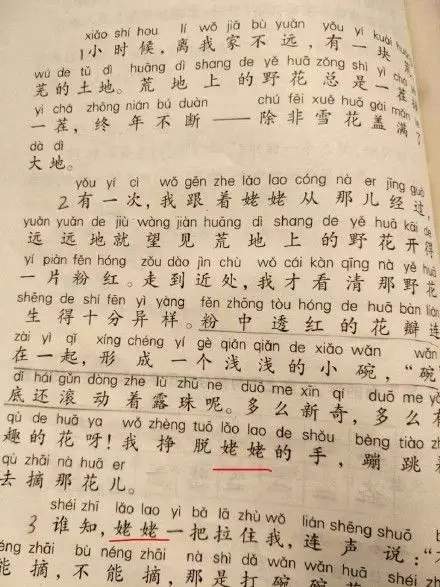 xiǎo shí hou lí wǒ jiā bù yuǎn yǒu yí kuài
1小时候，离我家不远，有一块
wú de tǔ dì huāng dì shang de yě huā zǒng shì yì chá
芜的土地。荒地上的野花总是一茬
yì chá zhōng nián bú duàn chú fēi xuě huā gài mǎn
一茬，终年不断——除非雪花盖满了
dà dì
大地。
yǒu yí cì wǒ gēn zhe lǎo lao cóng nà er jīng guò
2有一次，我跟着姥姥从那儿经过，
yuǎn yuǎn de jiù wàng jiàn huāng dì shang de yě huā kāi de
远远地就望见荒地上的野花开得
yí piàn fěn hóng zǒu dào jìn chù wǒ cái kàn qīng nà yě huā
一片粉红。走到近处，我才看清那野花
shēng de shí fēn yì yàng fěn zhōng tòu hóng de huā bàn lián
生得十分异样。粉中透红的花瓣连
zài yì qǐ xíng chéng yí gè qiǎn qiǎn de xiǎo wǎn wǎn
在一起，形成一个浅浅的小碗，“碗
dǐ hái gǔn dòng zhe lù zhū ne duō me xīn qí duō me yǒu
底还滚动着露珠呢。多么新奇，多么有
qù de huā ya wǒ zhèng tuō lǎo lao de shǒu bèng tiào zhe
趣的花呀！我挣脱姥姥的手，蹦跳着
qù zhāi nà huā er
去摘那花儿。
shéi zhī lǎo lao yì bǎ lā zhù wǒ lián shēng shuō
3谁知，姥姥一把拉住我，连声说：“
néng zhāi bù néng zhāi nà shì dǎ wǎn wǎn huā
能摘，不能摘，那是打碗碗花